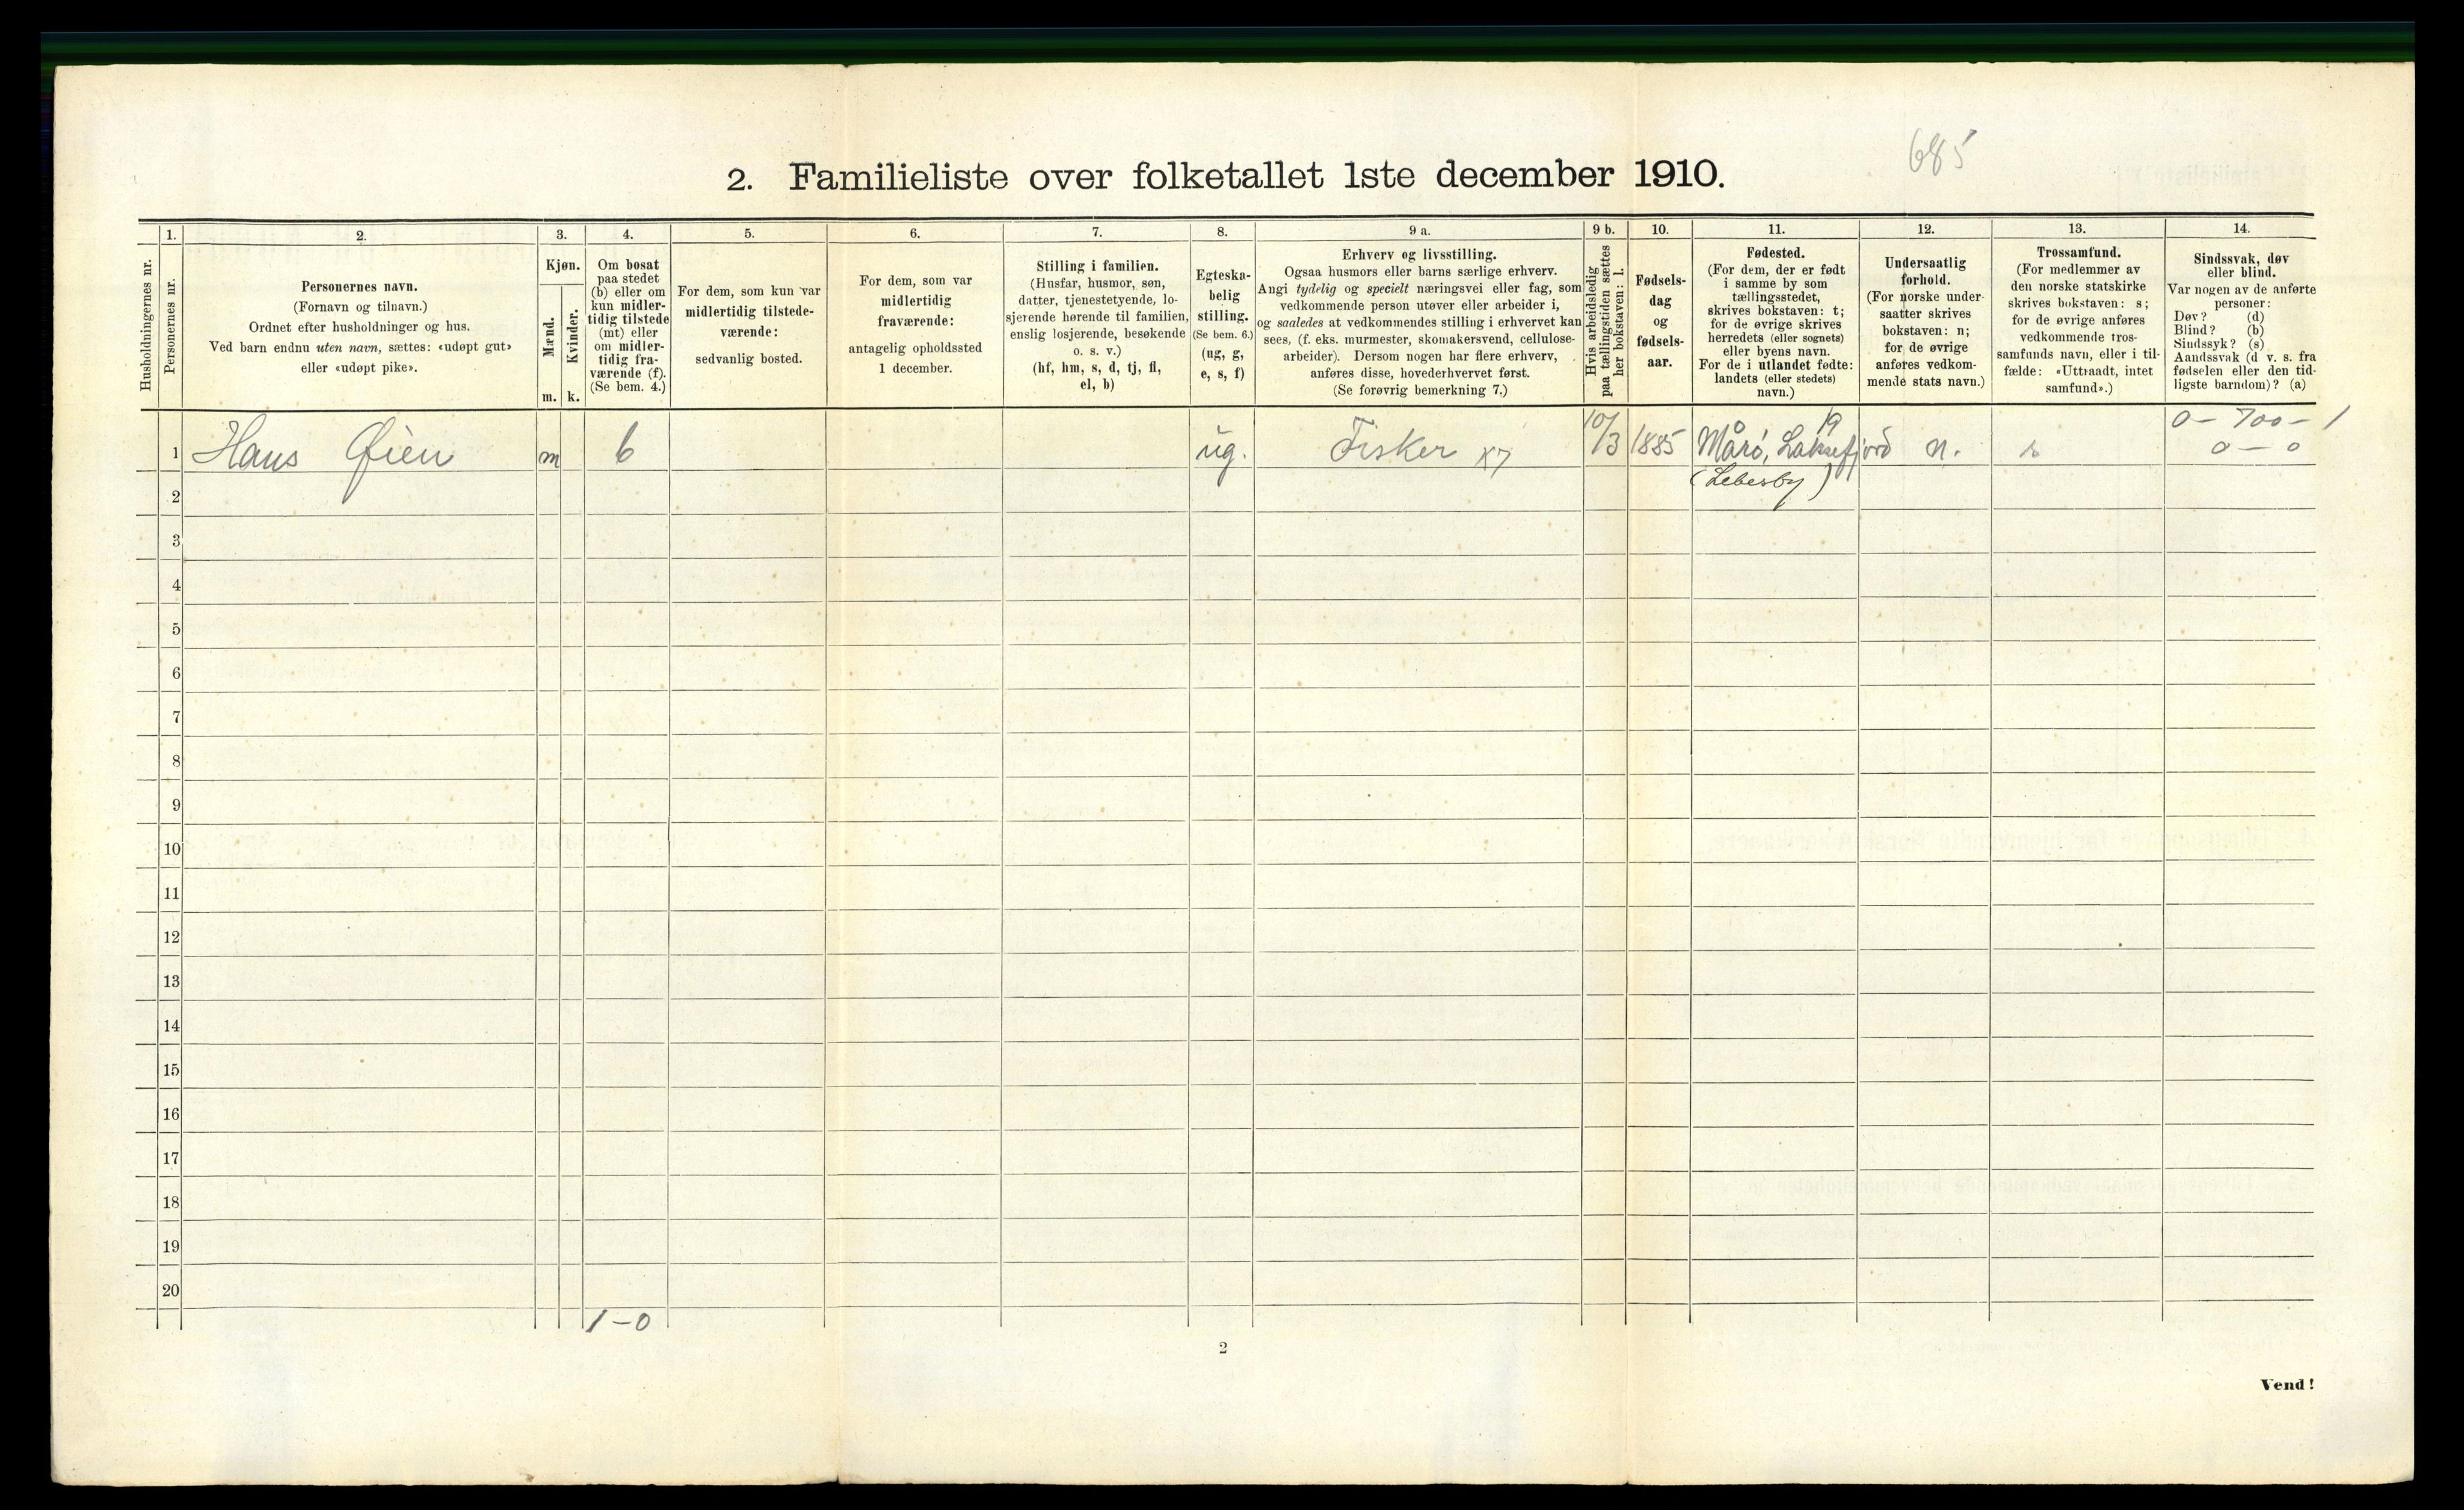 685
2. Familieliste over folketallet 1ste december 1910.
Husholdningernes nr.
1.
Personernes nr.
2.
Personernes navn.
(Fornavn og tilnavn.)
Ordnet efter husholdninger og hus.
Ved barn endnu uten navn, sættes: «udøpt gut»
eller «udøpt pike».
3.
Kjøn.
Mænd.
Kvinder.
m. k.
4.
Om bosat
paa stedet
(b) eller om
kun midler-
tidig tilstede
(mt) eller
om midler-
tidig fra-
værende (f).
(Se bem. 4.)
5.
For dem, som kun var
midlertidig tilstede-
værende:
sedvanlig bosted.
6.
For dem, som var
midlertidig
fraværende:
antagelig opholdssted
1 december.
7.
Stilling i familien.
(Husfar, husmor, søn,
datter, tjenestetyende, lo-
sjerende hørende til familien,
enslig losjerende, besøkende
o. s. v.)
(hf, hm, s, d, tj, fl,
el, b)
8.
Egteska-
belig
stilling.
(Se bem. 6.)
(ug, g,
e, s, f)
9 a.
Erhverv og livsstilling.
Ogsaa husmors eller barns særlige erhverv.
Angi tydelig og specielt næringsvei eller fag, som
vedkommende person utøver eller arbeider i,
og saaledes at vedkommendes stilling i erhvervet kan
sees, (f. eks. murmester, skomakersvend, cellulose-
arbeider). Dersom nogen har flere erhverv,
anføres disse, hovederhvervet først.
(Se forøvrig bemerkning 7.)
9 b.
Hvis arbeidsledig
paa tællingstiden sættes
her bokstaven: l.
10.
Fødsels-
dag
og
fødsels-
aar.
11.
Fødested.
(For dem, der er født
i samme by som
tællingsstedet,
skrives bokstaven: t;
for de øvrige skrives
herredets (eller sognets)
eller byens navn.
For de i utlandet fødte:
landets (eller stedets)
navn.)
12.
Undersaatlig
forhold.
(For norske under-
saatter skrives
bokstaven: n;
for de øvrige
anføres vedkom-
mende stats navn.)
13.
Trossamfund.
(For medlemmer av
den norske statskirke
skrives bokstaven: s;
for de øvrige anføres
vedkommende tros-
samfunds navn, eller i til-
fælde: «Uttraadt, intet
samfund».)
14.
Sindssvak, døv
eller blind.
Var nogen av de anførte
personer:
Døv? (d)
Blind? (b)
Sindssyk? (s)
Aandssvak (d v. s. fra
fødselen eller den tid-
ligste barndom)? (a)
19
0 - 700 - 1
1 Hans Øien m b ug. Fisker 10/3 1885 Mårö, Laksefjord n. s 0 - 0
(Lebesby)
2
3
4
5
6
7
8
9
10
11
12
13
14
15
16
17
18
19
20
1 - 0
2
Vend!